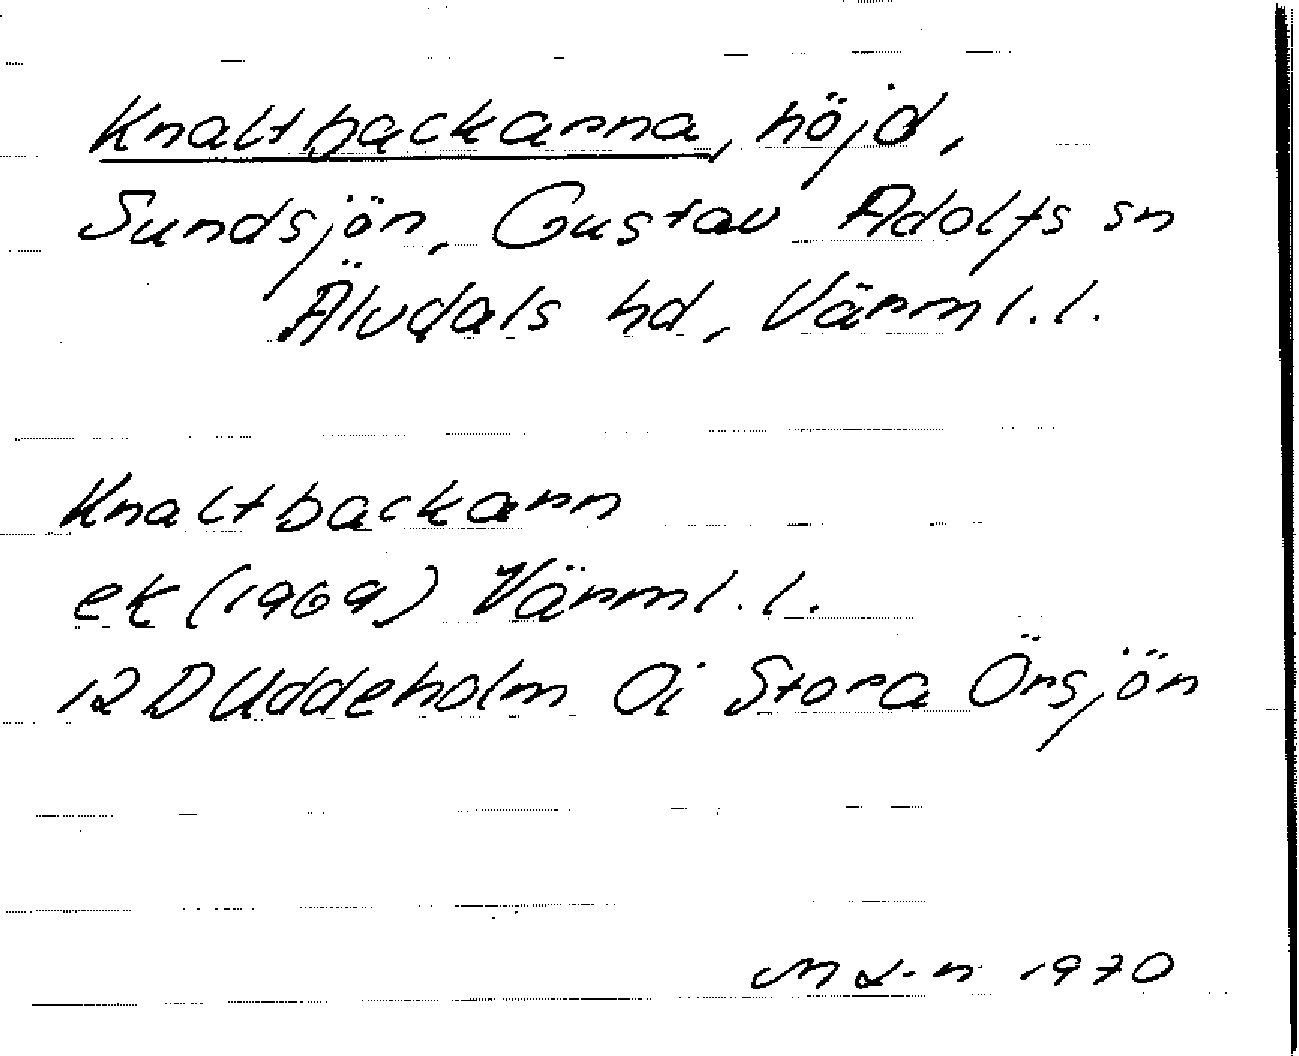 Knaltbackarna, höjd,
Sundsjön, Gustav Adolfs sn
Älvdals hd, Värml. l.
Knaltbackarn
ek (1969) Värml. l.
12 D Uddeholm 0i Stora Örsjön
1970